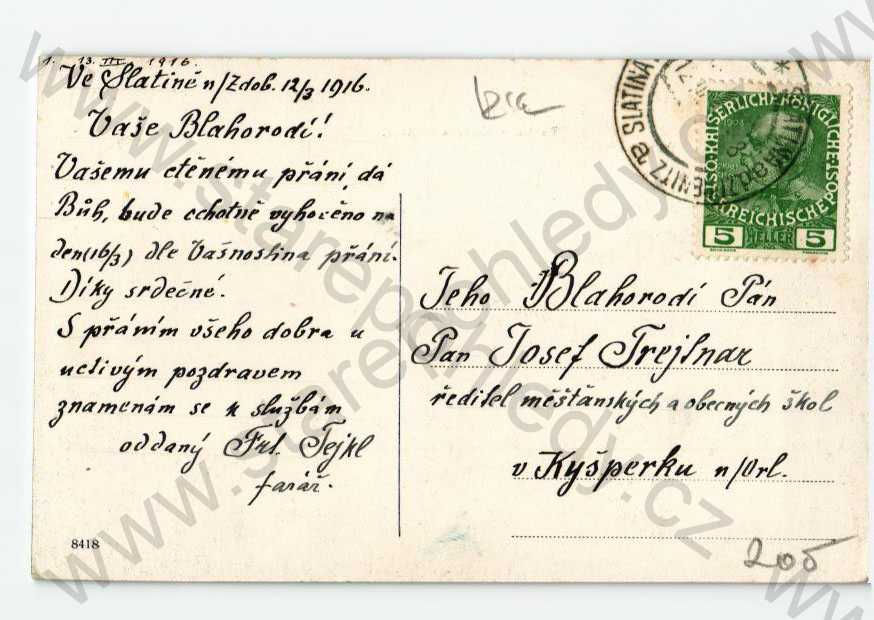 1. 13. III. 1916.
Ve Slatině n/Zdob. 12/3 1916.
Vaše Blahorodí!
Vašemu ctěnému přání, dá
Bůh, bude ochotně vyhověno na
den (16/3) dle Vašnostina přání.
Díky srdečné.
S přáním všeho dobra u
uctivým pozdravem
znamenám se k službám
oddaný Frt. Tejkl
farář.
8418
SLATINA
KAISERLICHE KÖNIGLICHE ÖSTERREICHISCHE POST
5 HELLER 5
Jeho Blahorodí Pán
Pan Josef Trejtnar
ředitel měšťanských a obecných škol
v Kyšperku n/Orl.
205
www.starepohledy.cz